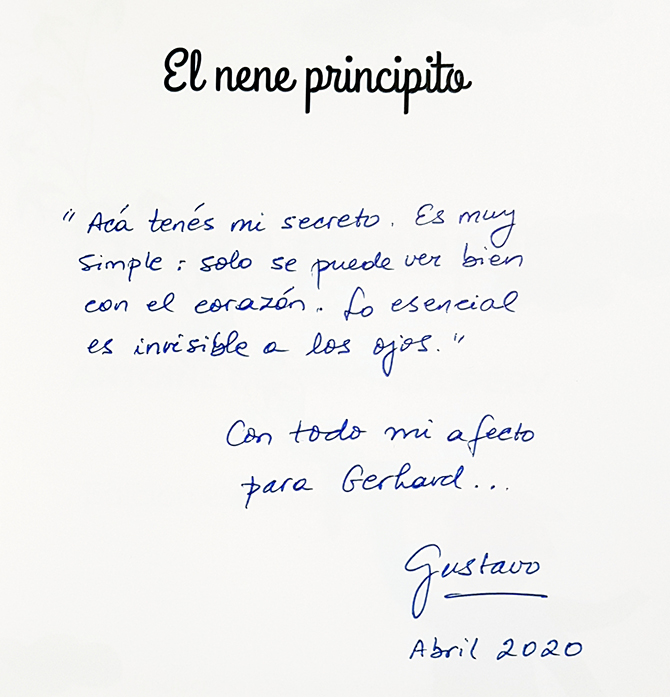 El nene principito
"Acá tenés mi secreto. Es muy
simple: solo se puede ver bien
con el corazón. Lo esencial
es invisible a los ojos."
Con todo mi afecto
para Gerhard...
Gustavo
Abril 2020